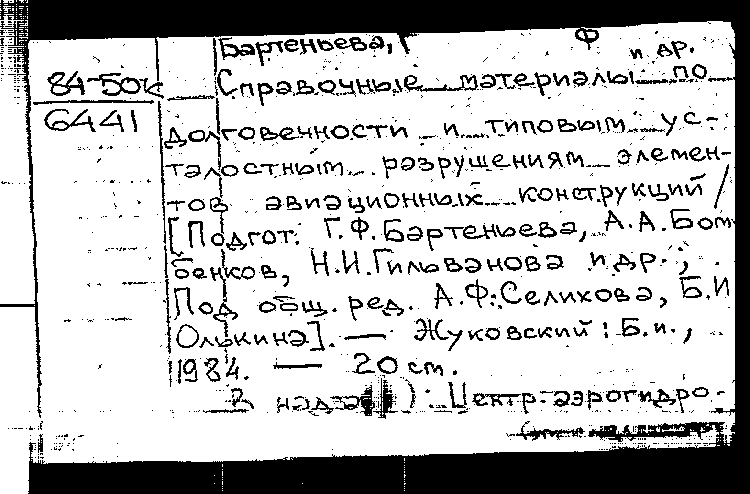 Бартеньева, Г Ф и др.
84-50к
Справочные материалы по
6441
долговечности и типовым ус-
талостным разрушениям элемен-
тов авиационных конструкций /
[Подгот. Г.Ф.Бартеньева, А.А.Бом
бенков, Н.И.Гильванова и др.;
Под общ. ред. А.Ф.Селихова, Б.И
Олькина]. — Жуковский: Б.и.,
1984. — 20 см.
В надзаг.): Центр. аэрогидро-